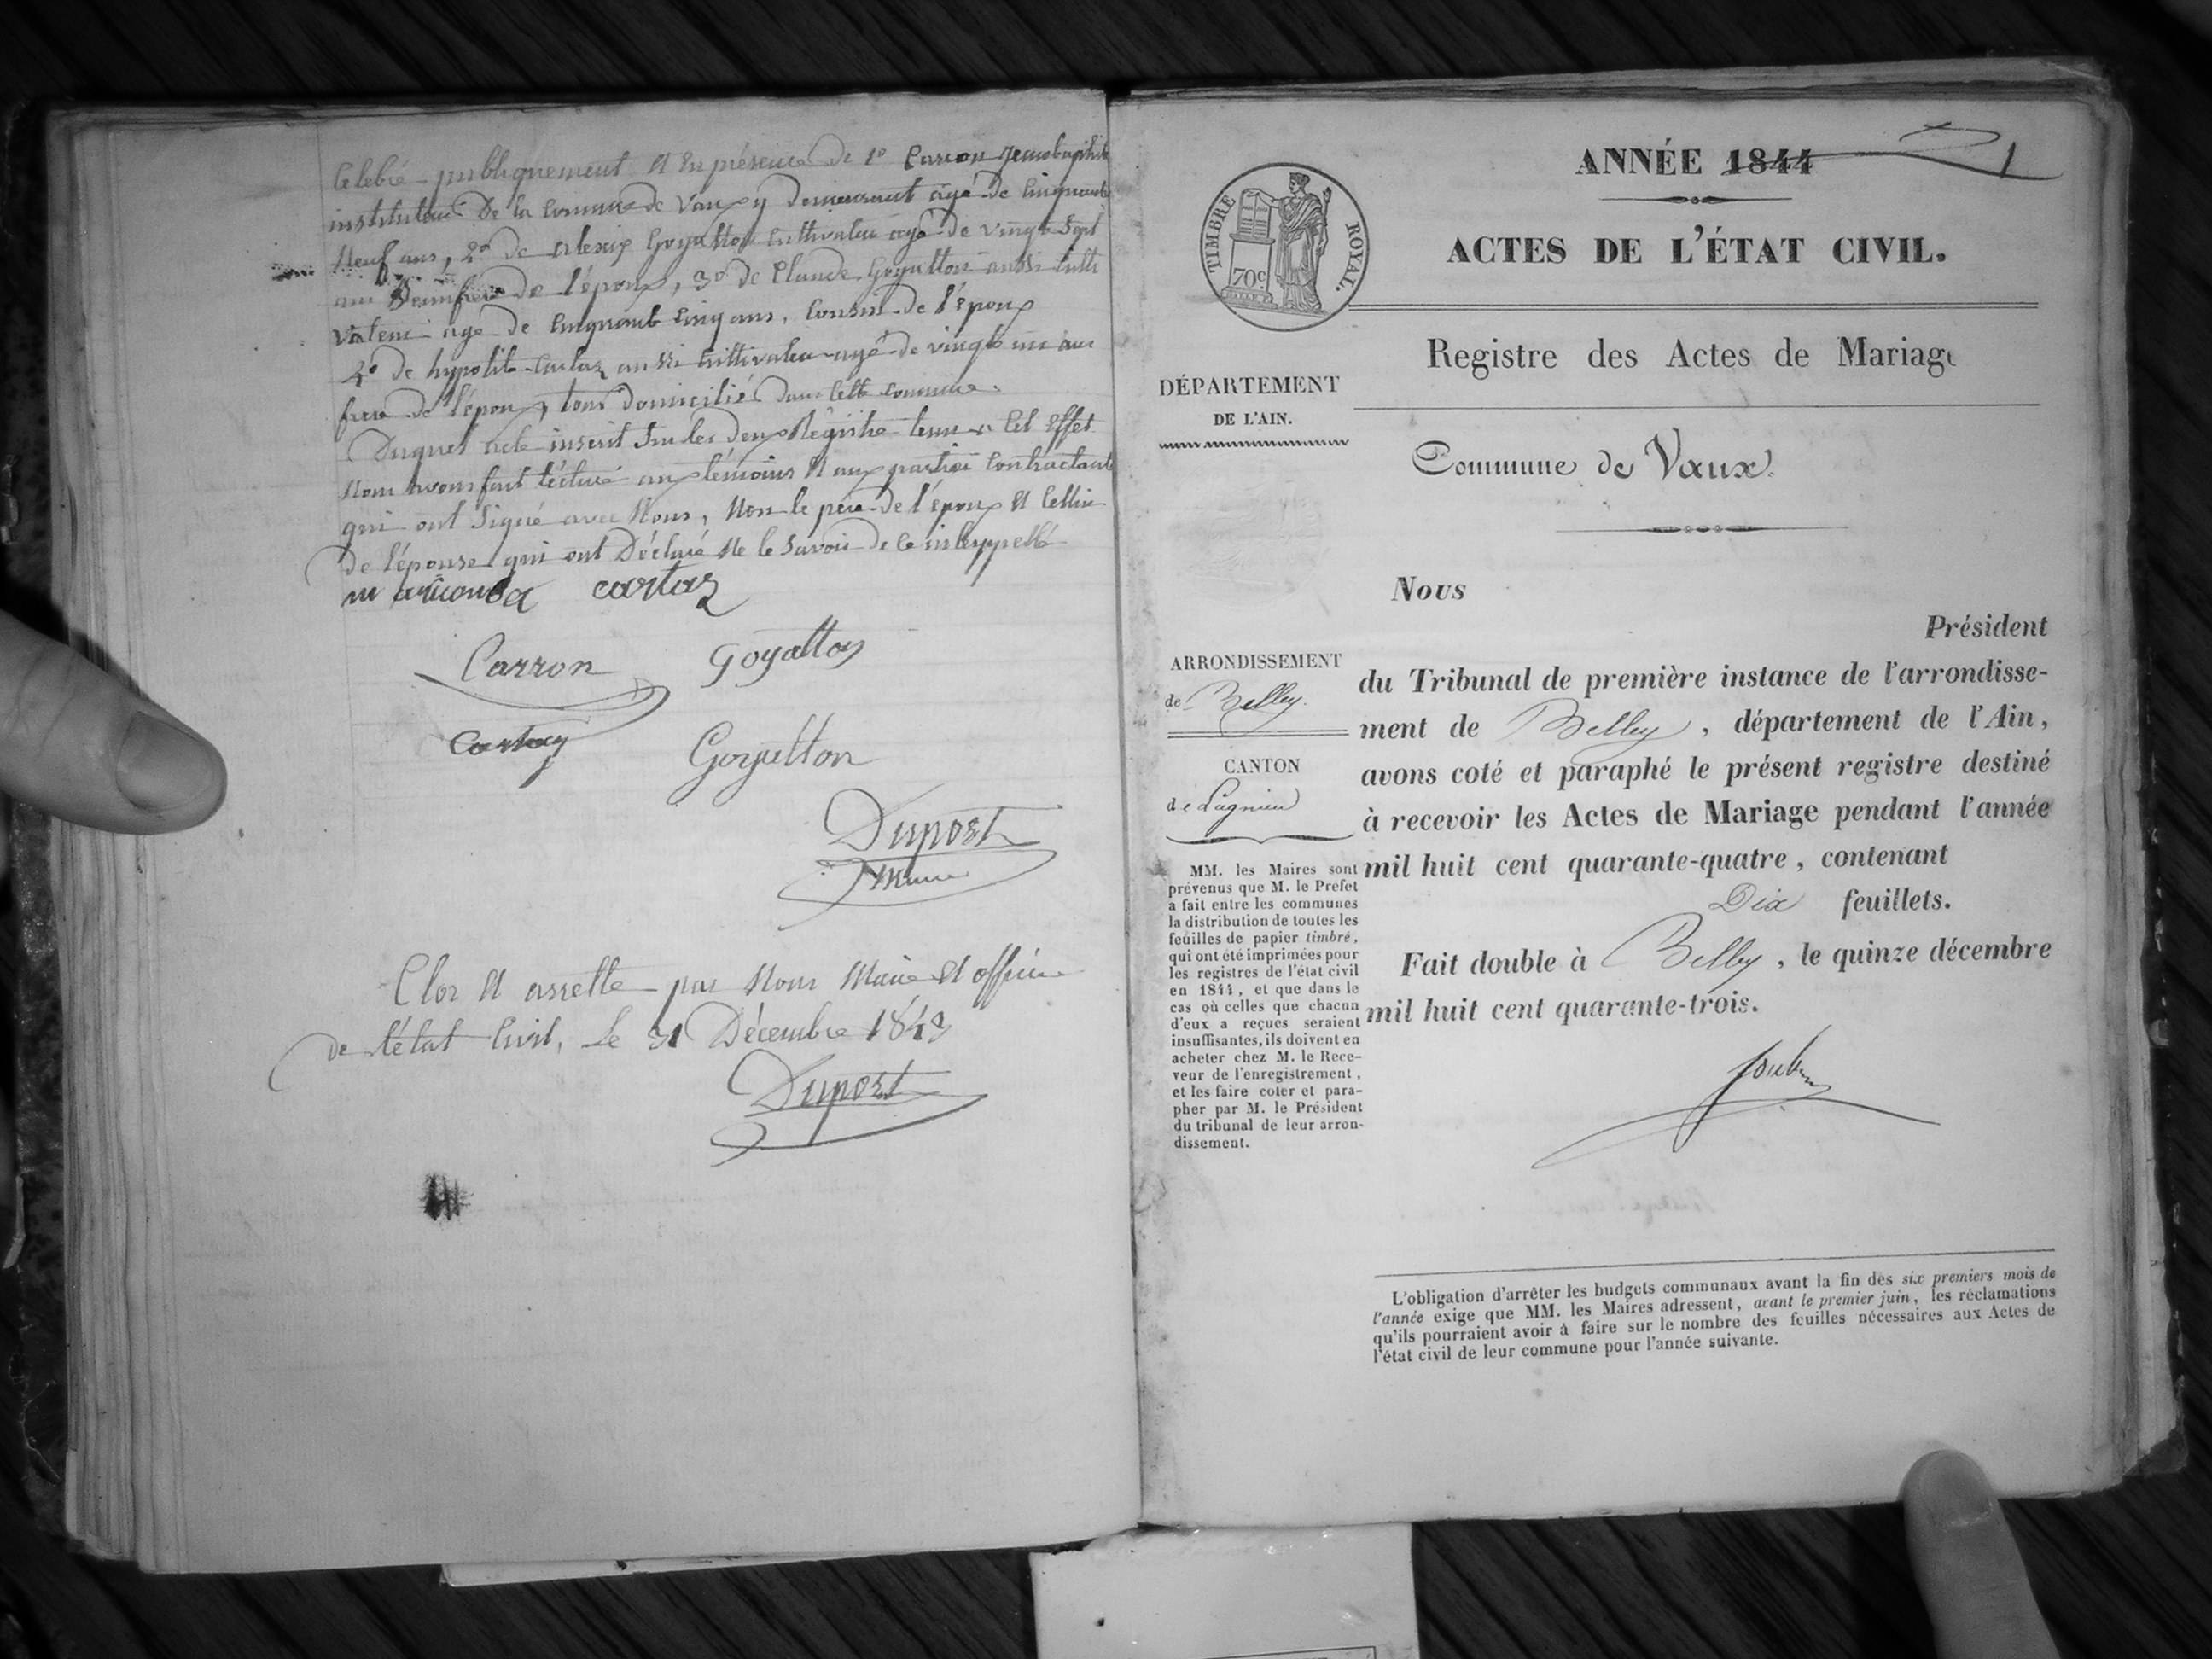 Celebré publiquement et en présence de 1° Carron Jeanbaptiste
instituteur De la Commune de Vaux y demeurant agé de Cinquante
Neuf ans, 2° de alexis Goyatton Cultivateur agé de vingt Sept
ans Beaufrere de l'époux, 3° de Claude Goyatton aussi Culti
vateur agé de Cinquante Cinq ans, Cousin de l'époux
4° de hypolite Cartaz aussi Cultivateur agé de vingt un ans
frere de l'époux, tous domicilié Dans Cette Commune.
Duquel acte inscrit Sur les deux Régistre tenu a Cet Effet
Nous avons fait lécture aux témoins et aux parties Contractante
qui ont Signé avec Nous, Non le père de l'époux et Celui
de l'épouse qui ont Déclaré Ne le Savoir de Ce interppellé
cartaz
Carron Goyatton
Cartaz Goyatton
Dupost
Maire
Clor et arretté par Nous Maire et officier
de l'état Civil, Le 31 Décembre 1843
Dupost
ANNÉE 1844
1
ACTES DE L'ÉTAT CIVIL.
TIMBRE ROYAL.
70c.
Registre des Actes de Mariage
DÉPARTEMENT
DE L'AIN.
Commune de Vaux.
Nous
Président
ARRONDISSEMENT
de Belley.
CANTON
de Lagnieu
du Tribunal de première instance de l'arrondisse-
ment de Belley, département de l'Ain,
avons coté et paraphé le présent registre destiné
à recevoir les Actes de Mariage pendant l'année
mil huit cent quarante-quatre, contenant
Dix feuillets.
Fait double à Belley, le quinze décembre
mil huit cent quarante-trois.
MM. les Maires sont
prévenus que M. le Prefet
a fait entre les communes
la distribution de toutes les
feuilles de papier timbré,
qui ont été imprimées pour
les registres de l'état civil
en 1844, et que dans le
cas où celles que chacun
d'eux a reçues seraient
insuffisantes, ils doivent en
acheter chez M. le Rece-
veur de l'enregistrement,
et les faire coter et para-
pher par M. le Président
du tribunal de leur arron-
dissement.
L'obligation d'arrêter les budgets communaux avant la fin des six premiers mois de
l'année exige que MM. les Maires adressent, avant le premier juin, les réclamations
qu'ils pourraient avoir à faire sur le nombre des feuilles nécessaires aux Actes de
l'état civil de leur commune pour l'année suivante.